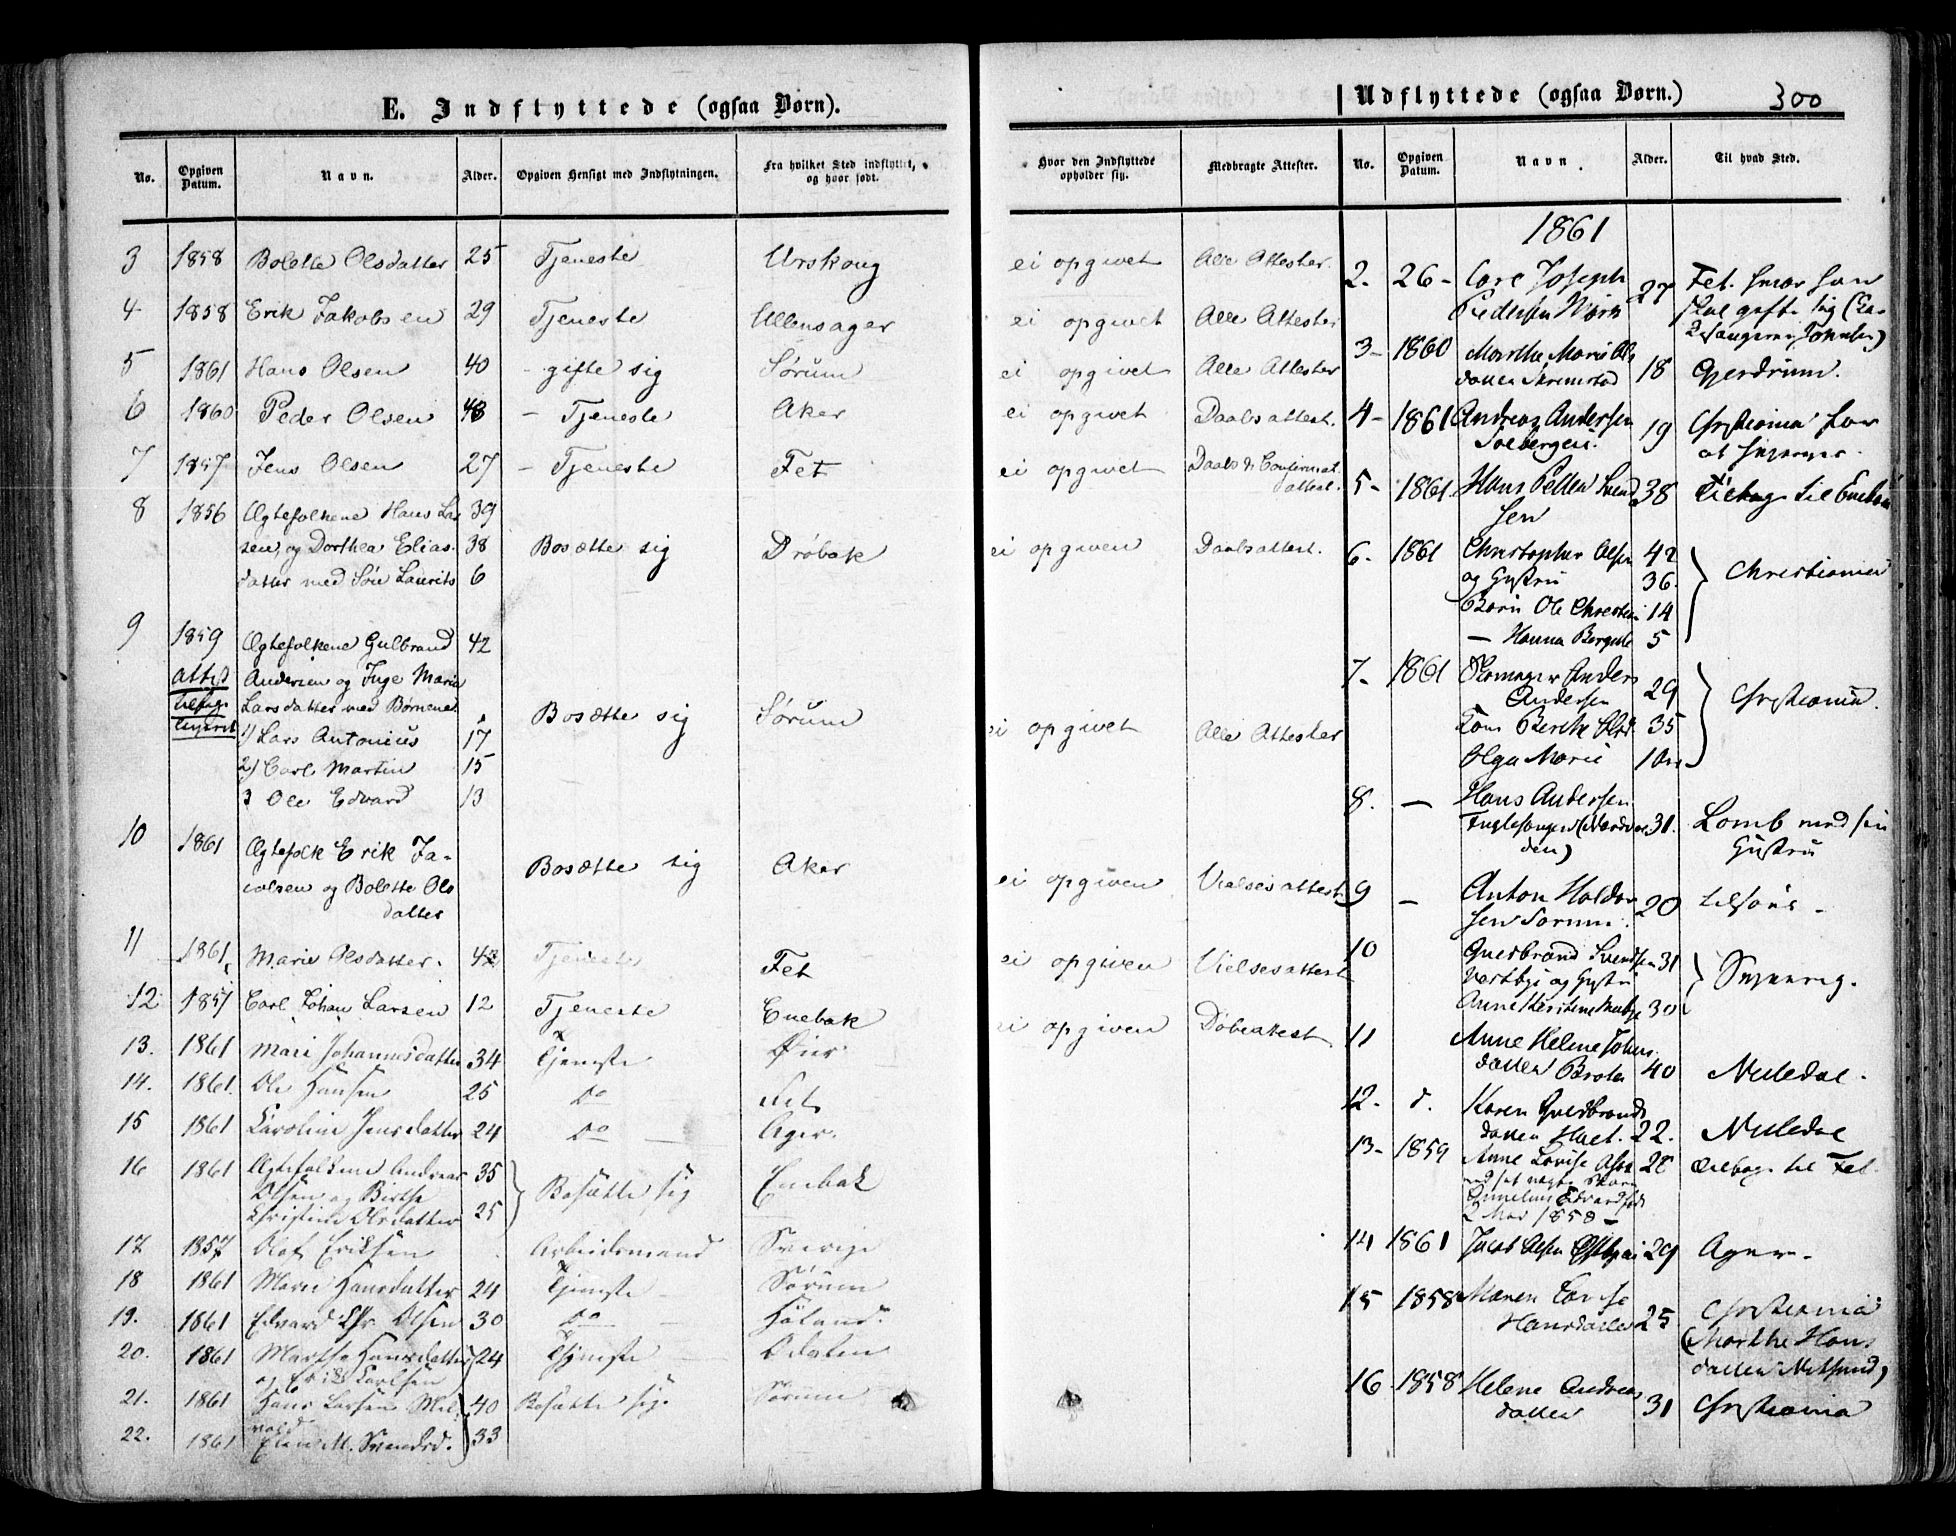 E. Indflyttede (ogsaa Børn).
No. Opgiven Datum. Navn. Alder. Opgiven Hensigt med Indflytningen. Fra hvilket Sted indflyttet, og hvor født.
3 1858 Bolette Olsdatter 25 Tjeneste Urskoug
4 1858 Erik Jakobsen 29 Tjeneste Ullensager
5 1861 Hans Olsen 40 - gifte sig Sørum
6 1860 Peder Olsen 48 - Tjeneste Aker
7 1857 Jens Olsen 27 - Tjeneste Fet
8 1856 Ægtefolkene Hans Lar 39
sen, og Dorthea Elias 38 Bosætte sig Drøbak
datter med Søn Laurits 6
9 1859 Ægtefolkene Gulbrand 42
Andersen og Inge Maria
Larsdatter med Børnene
1) Lars Antonius 17 Bosætte sig Sørum
2) Carl Martin 15
3 Ole Edvard 13
10 1861 Ægtefolk Erik Ja-
cobsen og Bolette Ols Bosætte sig Aker
datter
11 1861 Marie Olsdatter. 42 Tjeneste Fet
12 1857 Carl Johan Larsen 12 Tjeneste Enebak
13. 1861 Mari Johannesdatter 34 Tjeneste
14. 1861. Ole Hansen 25 do Fet
15 1861 Karoline Jensdatter 24 do Ager.
16 1861 Ægtefolkene Andreas 35
Olsen og Birthe Bosætte sig Enebak
Christine Olsdatter 25
17 1857 Olof Eriksen Arbeidsmand Sverige
18 1861 Maren Hansdatter 24 Tjeneste Sørum
19. 1861 Edvard Chr. Olsen 30 do Høland.
20. 1861 Marthe Hansdatter 24 Tjeneste Odalen
og Erik Carlsen
21. 1861 Hans Larsen 40 Bosætte sig. Sørum
22. 1861 Elen M. Svendsd. 33
Udflyttede (ogsaa Børn.) 300
Hvor den Indflyttede opholder sig. Medbragte Attester. No. Opgiven Datum. Navn. Alder. Til hvad Sted.
1861
ei opgivet Alle Attester.
ei opgivet Alle Attester
ei opgivet Alle Attester
ei opgivet Daabsattest.
ei opgivet Daabs & Confirmat. attest.
ei opgiven Daabsattest.
ei opgivet Alle Attester
ei opgiven Vielsesattest
ei opgiven Vielsesattest
ei opgiven Døbeattest
2. 26- Carl Joseph
Pedersen 27 Fet. hvor han
skal gifte sig
3- 1860 Marthe Marie Ols
datter 18 Gjerdrum.
4- 1861 Andreas Andersen
Solbergeie. 19 Christiania for
5- 1861 Hans Petter Svend 38 Tilbage til Enebak
sen
6- 1861 Christopher Olsen 42
og Hustru 36. Christiania
Barn Ole Christian 14
- Hanna Bergitte 5
7- 1861 Skomager Anders
Andersen 29 Christiania.
Kone Berthe 35
Olga Marie
8. - Hans Andersen
31. Lomb med sin
Hustru
9 - Anton Haldor
sen Sørum. 20 tilsøs -
10 Guldbrand Svendsen 31
og Hustru
30
11 Anne Helene Johns
datter Braaten 40 Nittedal.
12. d. Karen Guldbrands
datter 22. Nittedal
13- 1859 Anne Lovise 28 tilbage til Fet.
2 Mai 1858 -
14 1861 Jacob Olsen 29 Ager.
15 1858 Maren Lovise
Hansdatter 25 Christiania
(Marthe Hans
datter
16. 1858 Helene Andreas
datter 31 Christiania